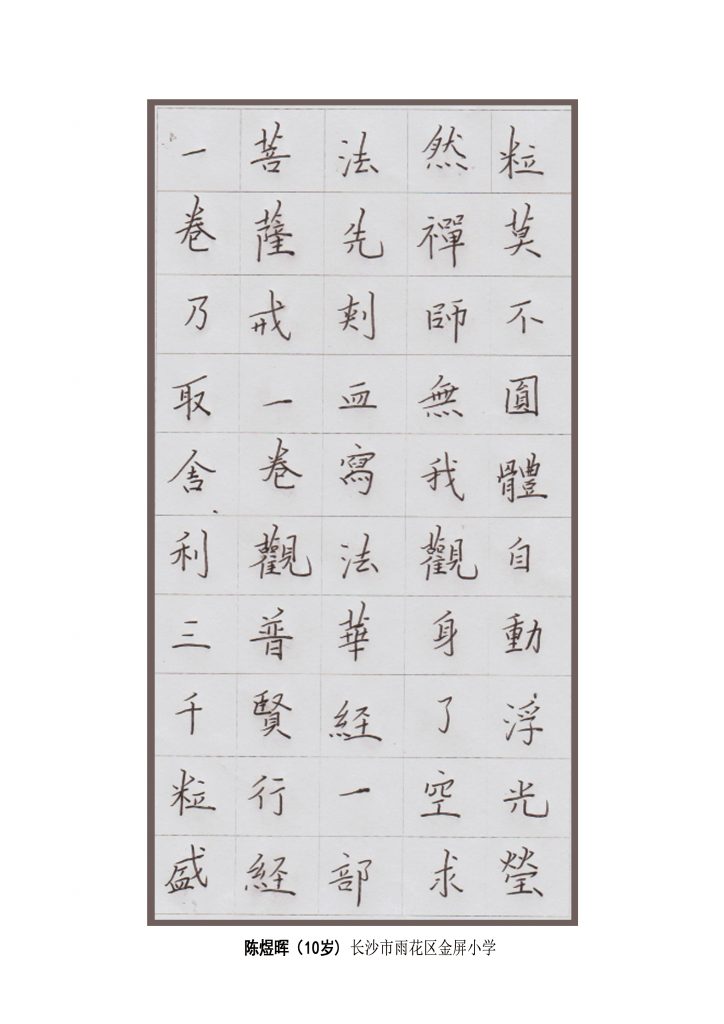 粒莫不圓體自動浮光瑩
然禪師無我觀身了空求
法先刺血寫法華経一部
菩薩戒一卷觀普賢行経
一卷乃取舍利三千粒盛
陈煜晖（10岁）长沙市雨花区金屏小学